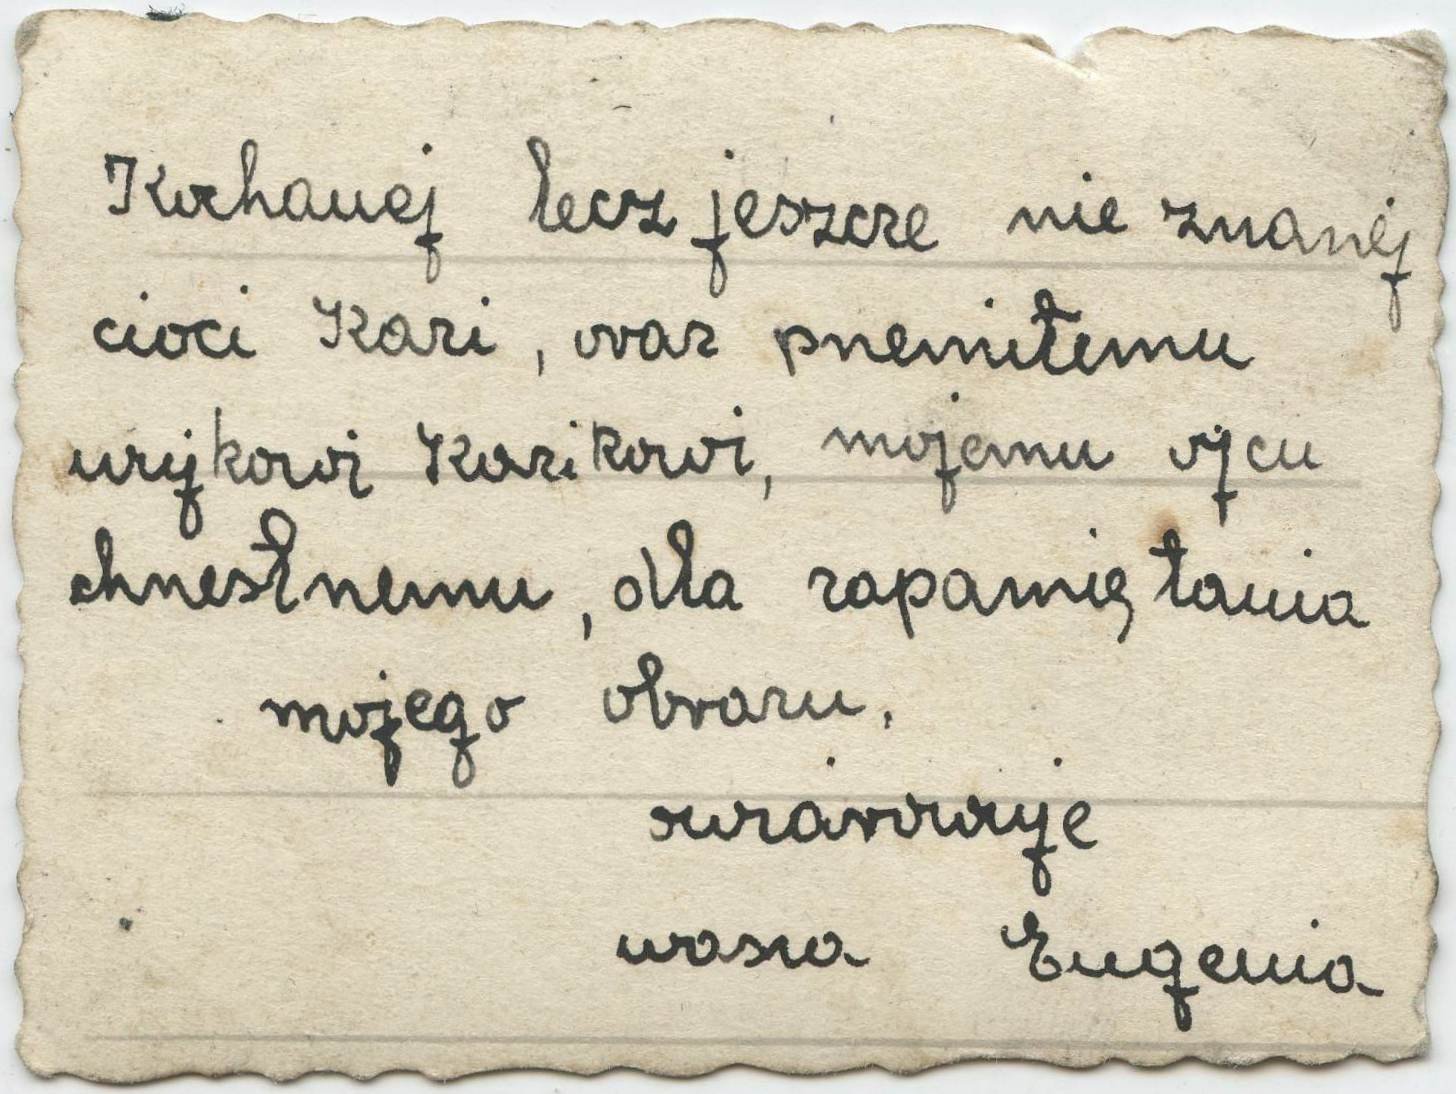 Kochanej lecz jeszcze nie znanej
cioci Kazi, oraz przemiłemu
wujkowi Kazikowi, mojemu ojcu
chrzestnemu, dla zapamiętania
mojego obrazu.
ofiarowuje
wasza Eugenia